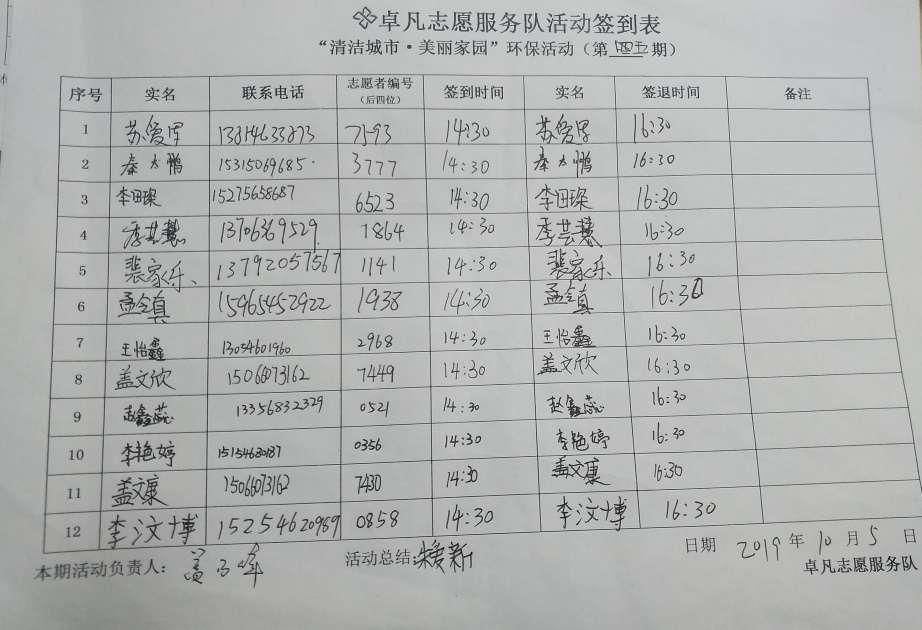 卓凡志愿服务队活动签到表
“清洁城市·美丽家园”环保活动（第 四五 期）
序号 实名 联系电话 志愿者编号（后四位） 签到时间 实名 签退时间 备注
1 苏爱军 13814633873 7593 14:30 苏爱军 16:30
2 秦太鹏 15315069685 3777 14:30 秦太鹏 16:30
3 李田璨 15275658687 6523 14:30 李田璨 16:30
4 季芸慧 13706369529 1864 14:30 季芸慧 16:30
5 裴家乐 13792057567 1141 14:30 裴家乐 16:30
6 孟令真 15965452922 1938 14:30 孟令真 16:30
7 王怡鑫 13054601960 2968 14:30 王怡鑫 16:30
8 盖文欣 15066073162 7449 14:30 盖文欣 16:30
9 赵鑫蕊 13356832329 0521 14:30 赵鑫蕊 16:30
10 李艳婷 0356 14:30 李艳婷 16:30
11 盖文康 15066073162 7430 14:30 盖文康 16:30
12 李汶博 15254620989 0858 14:30 李汶博 16:30
本期活动负责人： 活动总结: 日期 2019 年 10 月 5 日
卓凡志愿服务队